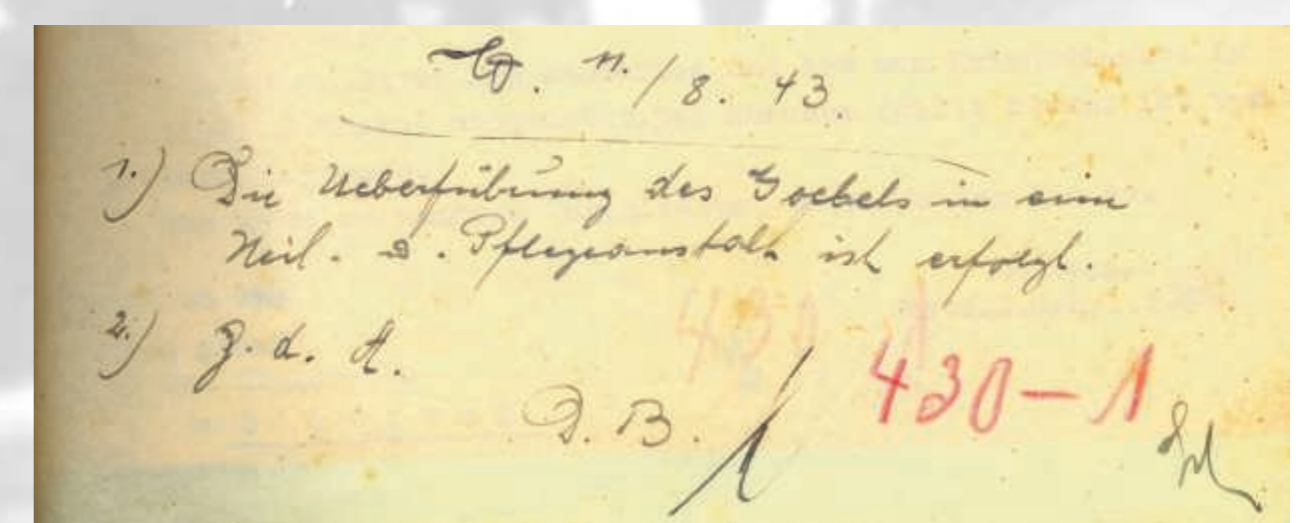 11./8. 43.
1.) Die Ueberführung des Goebels in eine
Heil- u. Pflegeanstalt ist erfolgt.
2.) Z. d. A.
D. B.
430-1